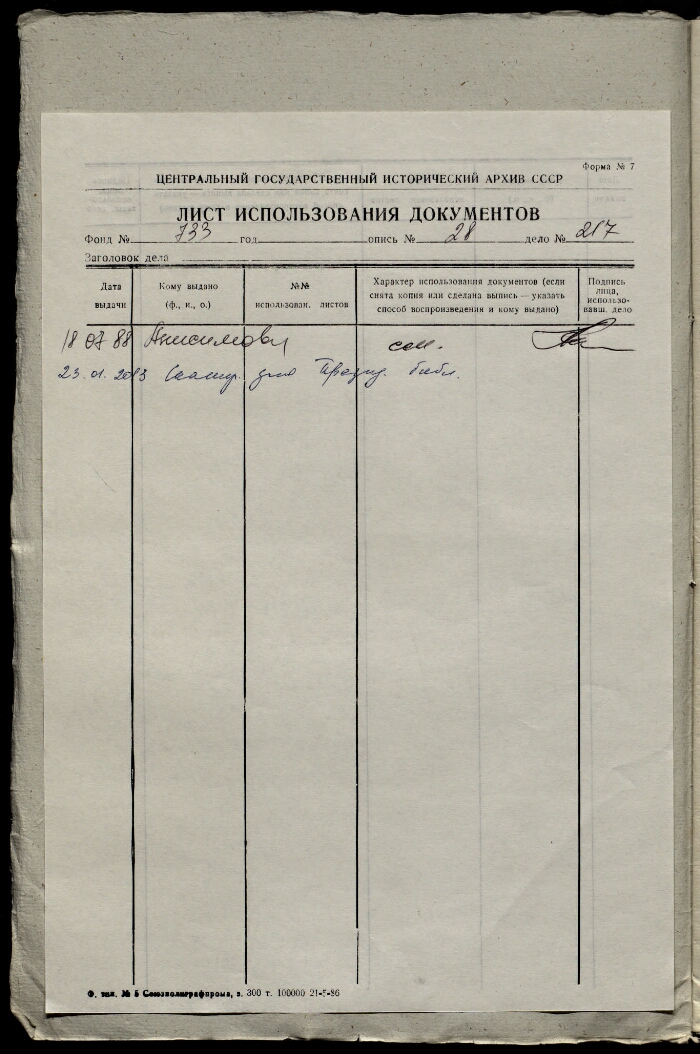 Форма № 7
ЦЕНТРАЛЬНЫЙ ГОСУДАРСТВЕННЫЙ ИСТОРИЧЕСКИЙ АРХИВ СССР
ЛИСТ ИСПОЛЬЗОВАНИЯ ДОКУМЕНТОВ
Фонд № 733 год опись № 28 дело № 217
Заголовок дела
Дата выдачи
Кому выдано (ф., и., о.)
№№ использован. листов
Характер использования документов (если снята копия или сделана выпись — указать способ воспроизведения и кому выдано)
Подпись лица, использо- вавш. дело
18 07 88 Анисимову
23.01.2013 Сканир. для Презид. библ.
Ф. тип. № 5 Союзполиграфпрома, з. 300 т. 100000 21-7-86